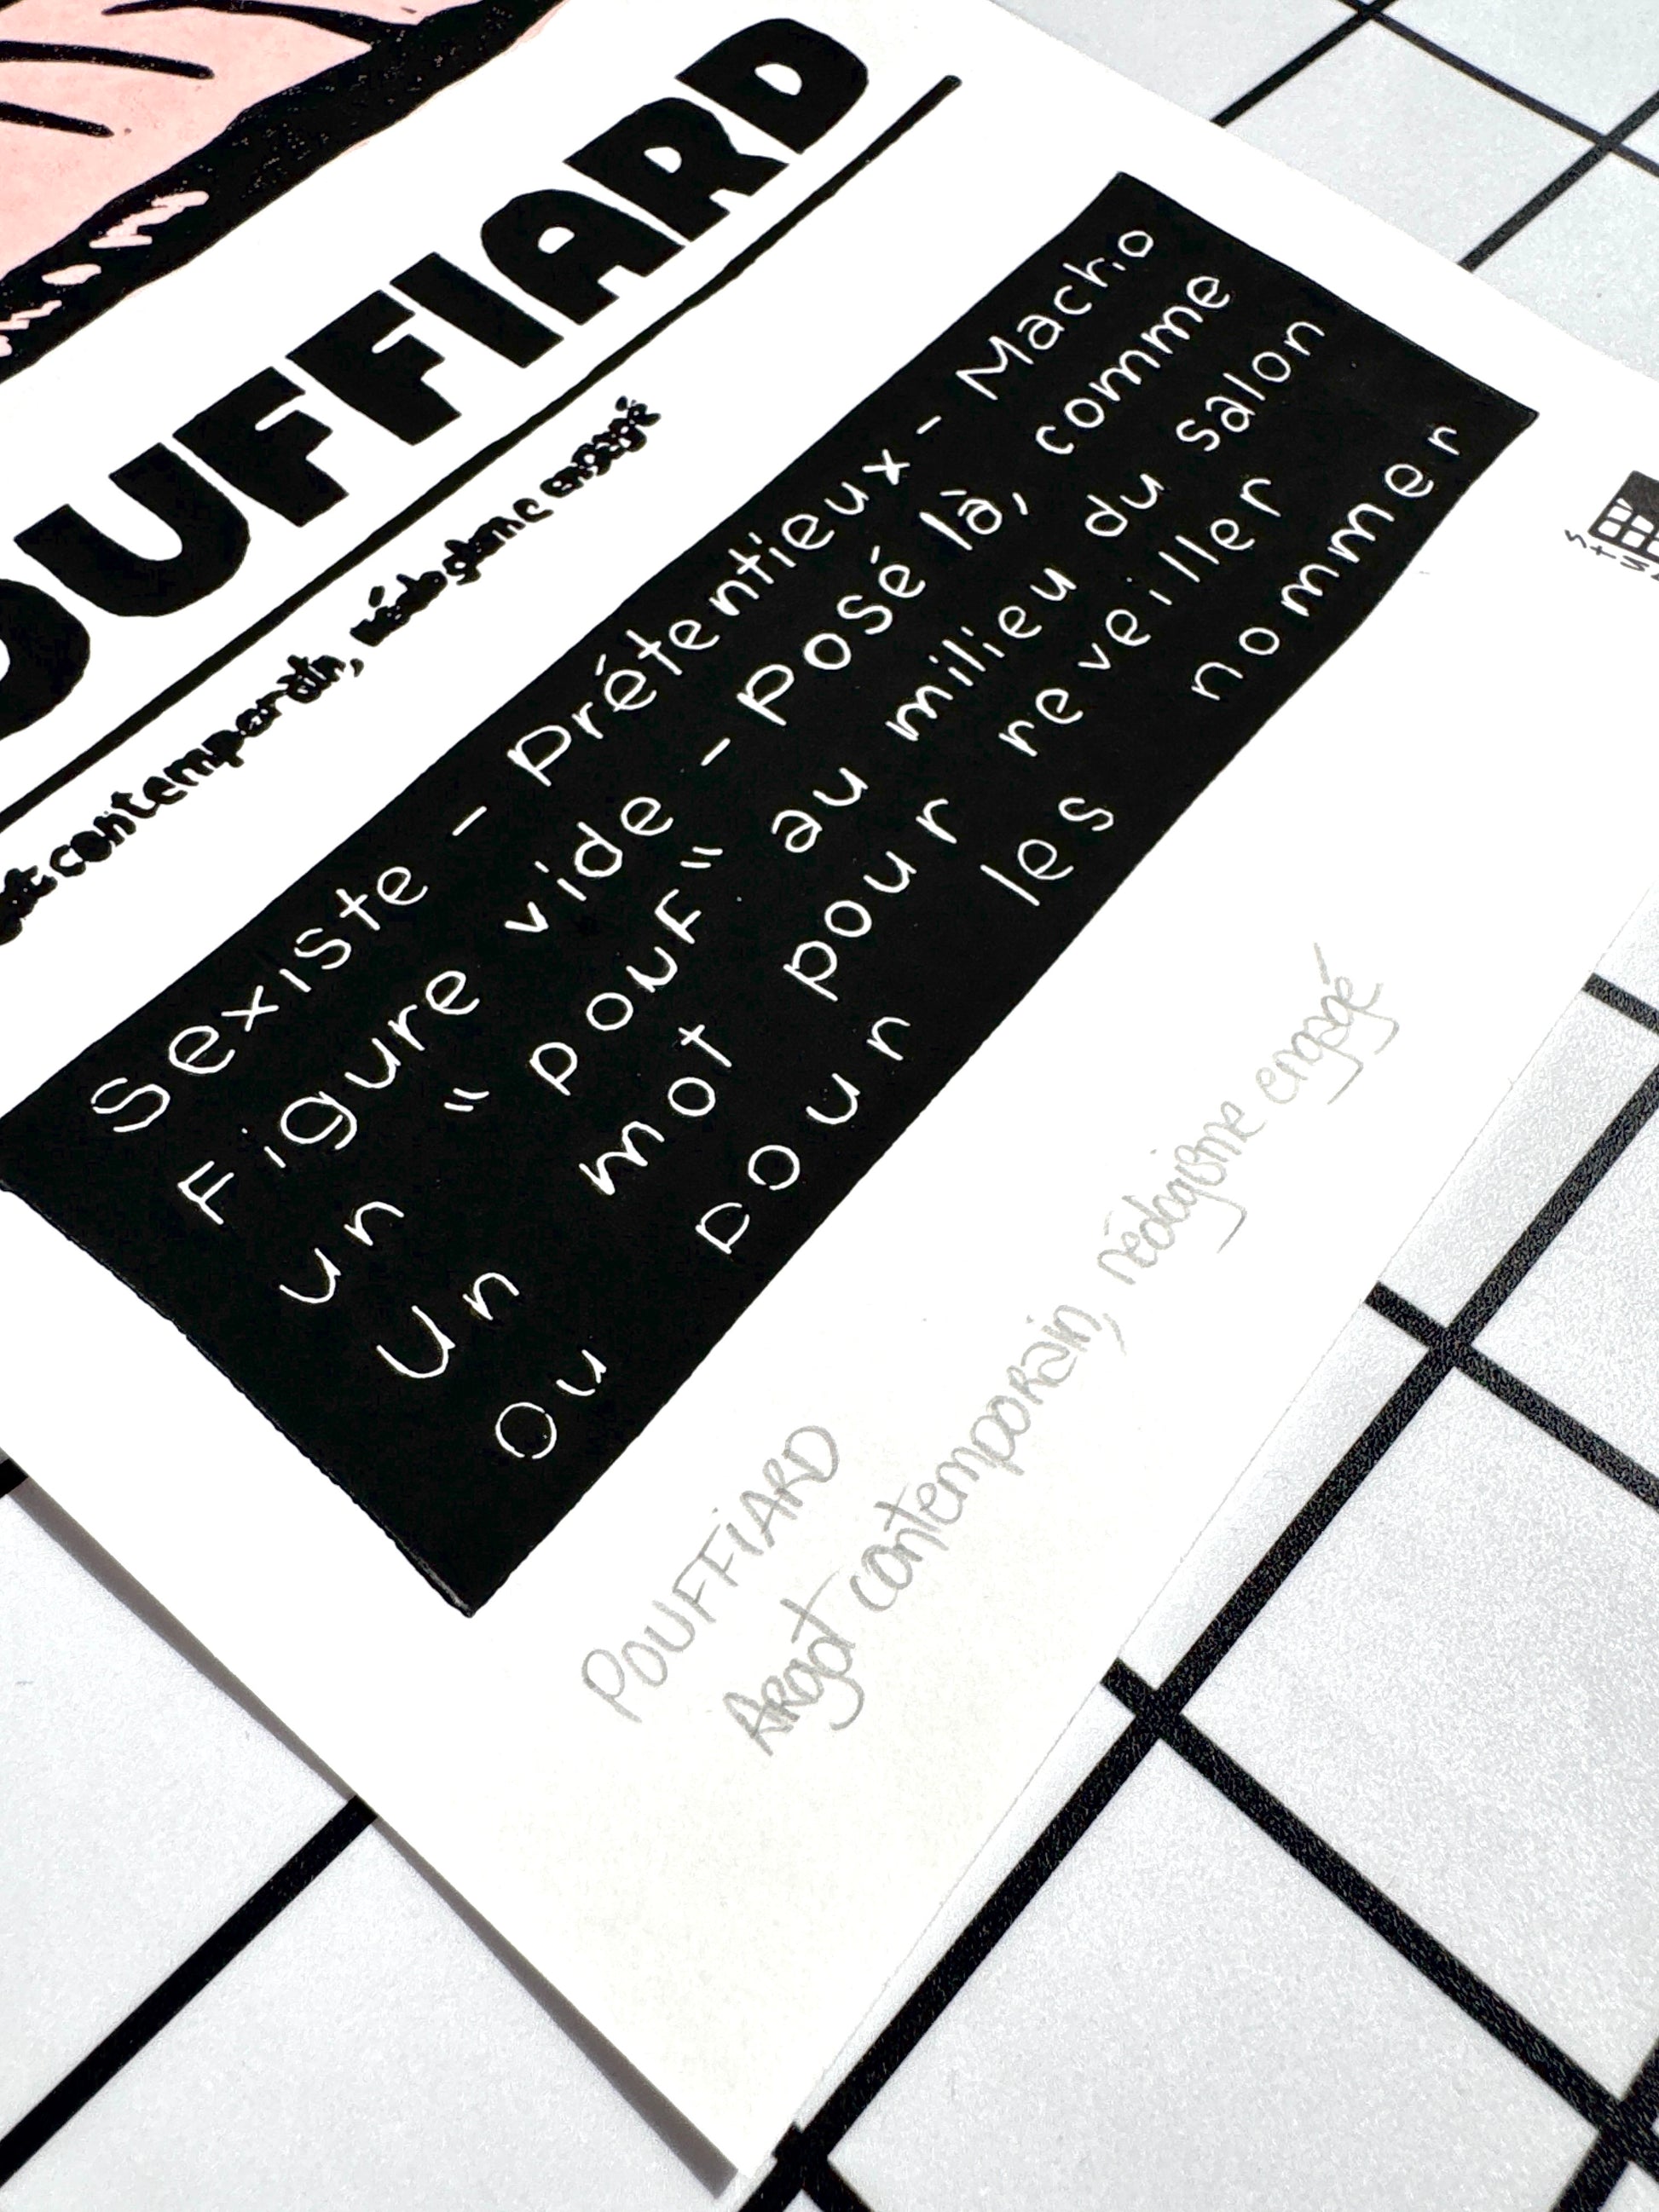 OUFFIARD
contemporain, néologisme engagé
Sexiste - Prétentieux - Macho
Figure vide - Posé là, comme
un "pouf" au milieu du salon
Un mot pour reveiller
Ou pour les nommer
POUFFIARD
Argot contemporain, néologisme engagé